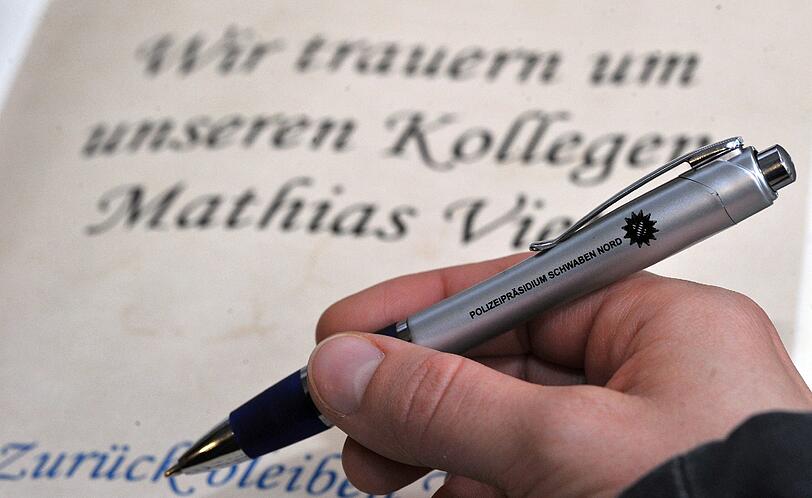 Wir trauern um
unseren Kollegen
Mathias Vie
POLIZEIPRÄSIDIUM SCHWABEN NORD
Zurück bleiben